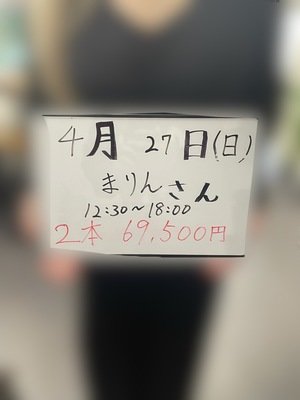 4月 27日(日)
まりんさん
12:30~18:00
2本 69,500円